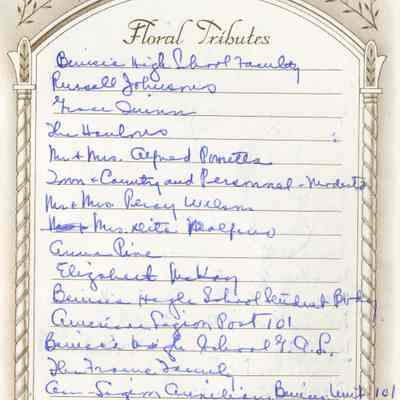 Floral Tributes
Benicia High School Faculty
Russell Johnsons
Grace Quinn
The Hanlons
Mr + Mrs. Alfred
Town + Country and Personnel - Modesto
Mr + Mrs Percy Wilson
+ Mrs.
Anna Pine
Elizabeth McKay
Benicia High School Student Body
American Legion Post 101
Benicia High School G.A.L.
The Family
Am - Legion Auxiliary Benicia Unit 101